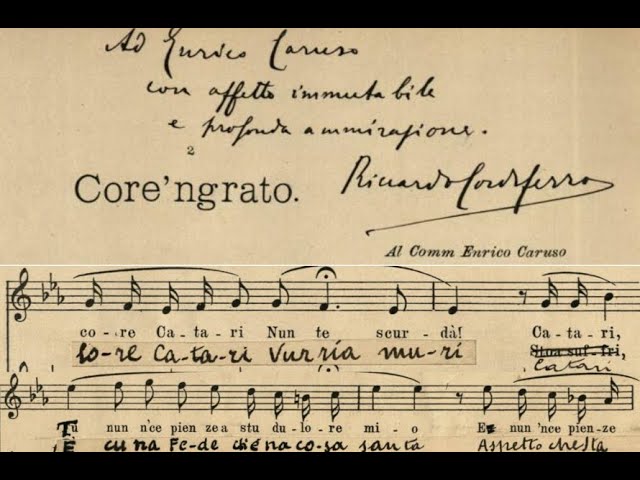 Ad Enrico Caruso
con affetto immutabile
e profonda ammirazione.
2
Core'ngrato.
Riccardo Cordiferro
Al Comm Enrico Caruso
co-re Ca-ta-ri Nun te scur-dà! Ca-ta-ri,
Co-re Ca-ta-ri Vurria mu-rí
Catari
Tu nun n'ce pien ze a stu du-lo-re mi-o E nun 'nce pien ze
É cu na Fe-de
co-sa santa Aspetto chesta